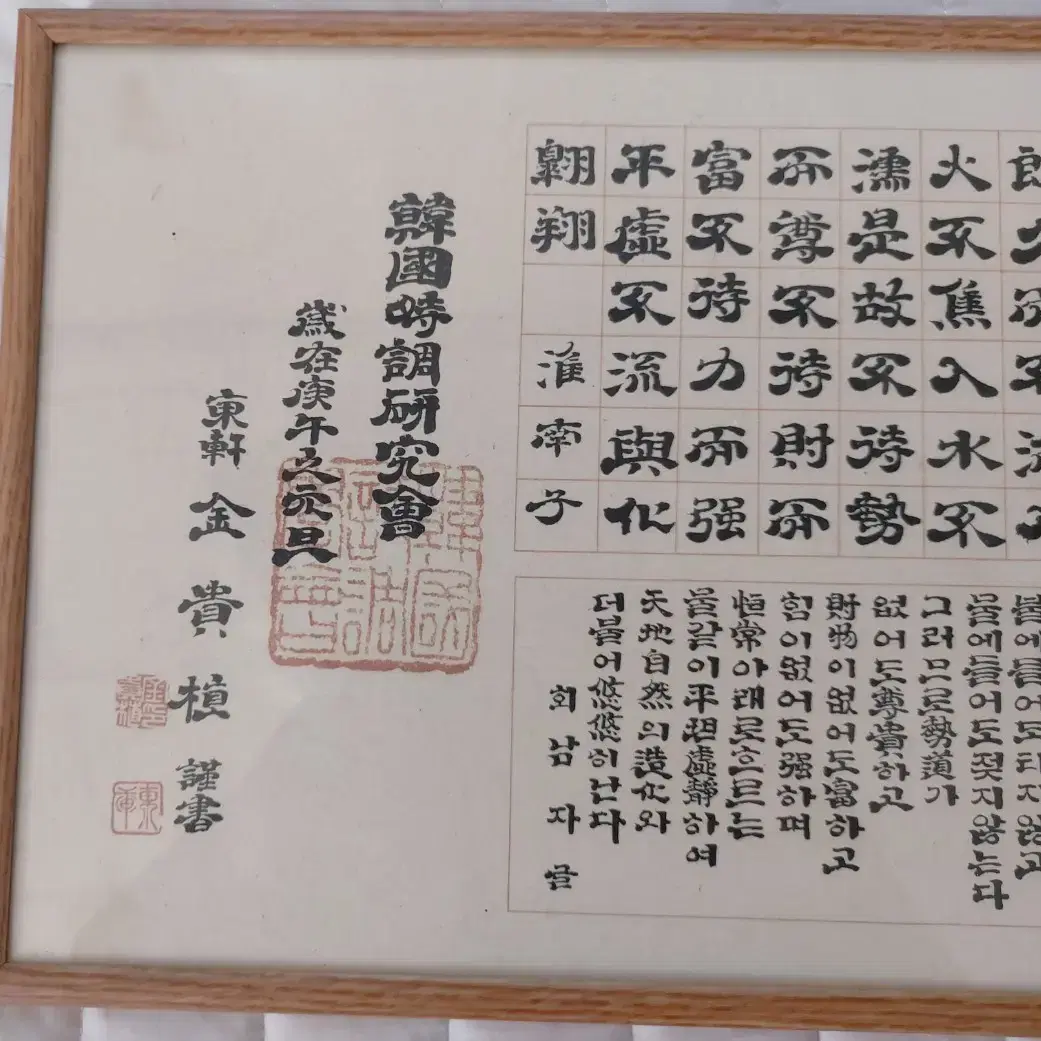 火不焦入水不
濡是故不待勢
而尊不待財而
富不待力而强
平虛不流與化
翶翔 淮南子
불에들어도타지않고
물에들어도젖지않는다
그러므로勢道가
없어도尊貴하고
財物이없어도富하고
힘이없어도强하며
恒常아래로흐르는
물같이平坦虛靜하여
天地自然의造化와
더불어悠悠히난다
회남자 글
韓國時調硏究會
歲在庚午之元旦
東軒 金貴楨 謹書